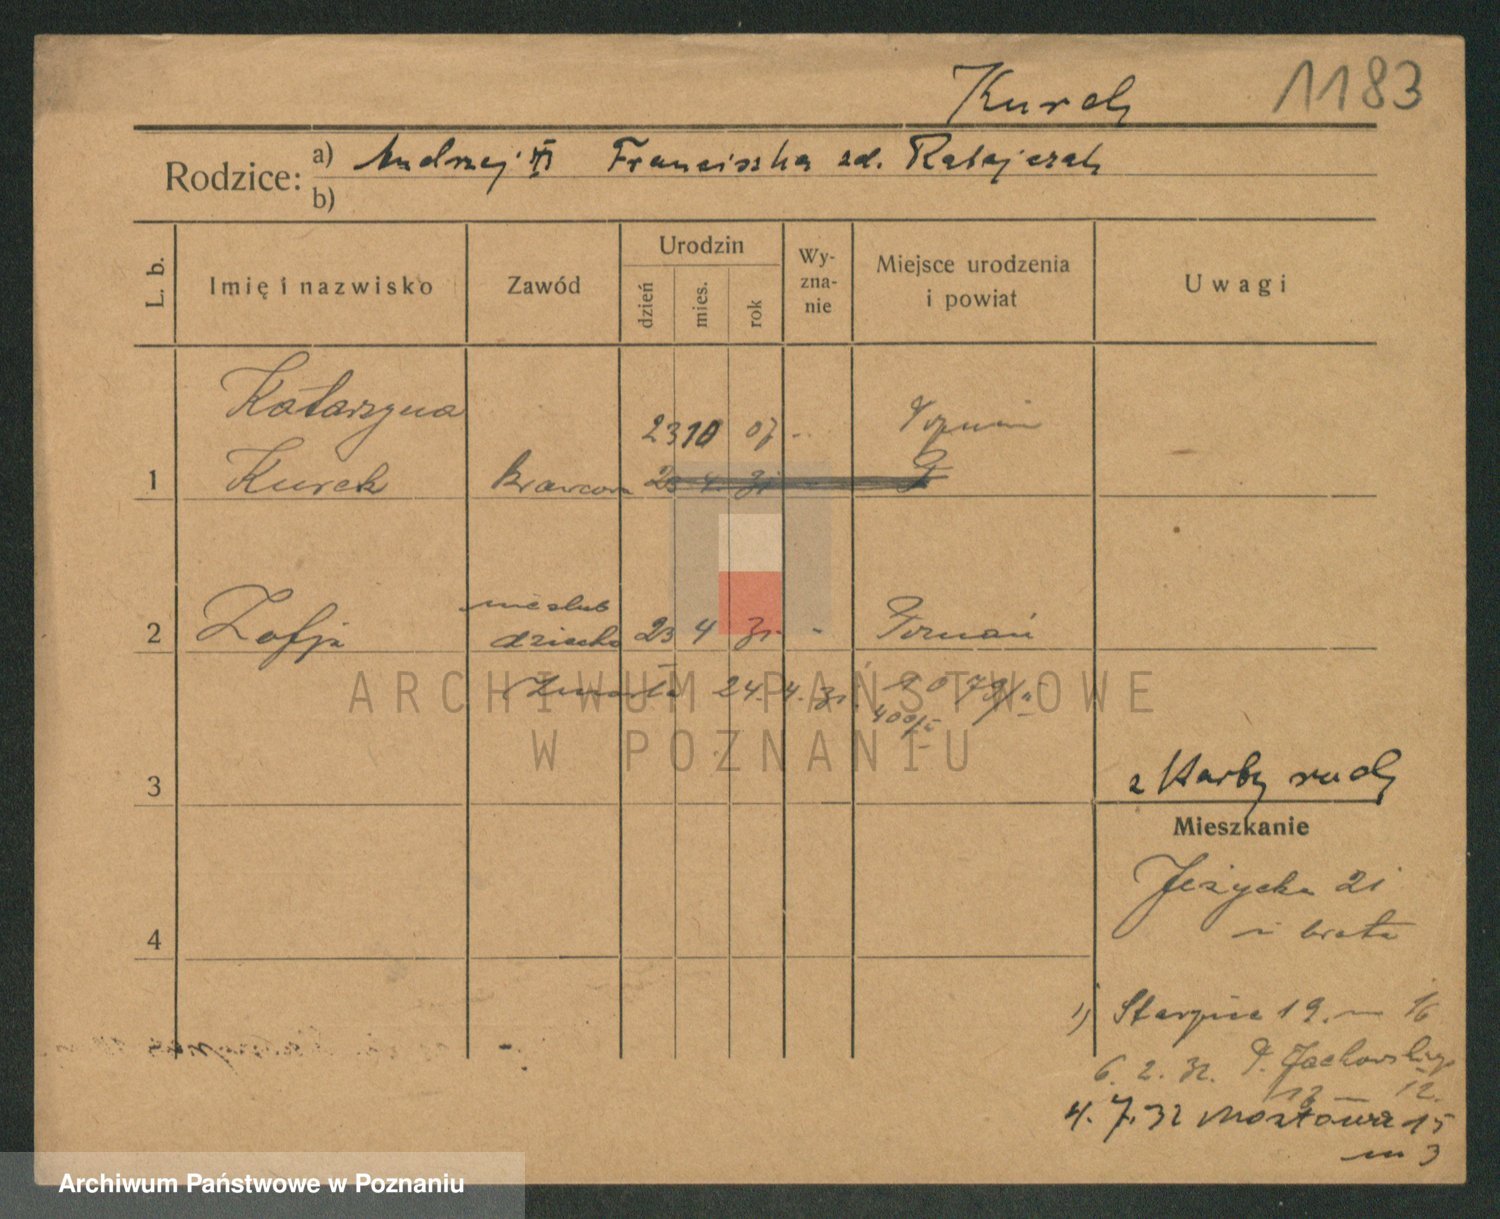 Kurek
1183
Rodzice:
a) Andrzej Franciszka zd. Ratajczak
b)
L. b.
Imię i nazwisko
Zawód
Urodzin
dzień
mies.
rok
Wy-
zna-
nie
Miejsce urodzenia
i powiat
Uwagi
Katarzyna
23 10 07 -
Poznań
1
Kurek
krawcowa
23 4 31
nieślub
2
Zofja
dziecko
23 4 31 -
Poznań
zmarła 24. 4. 31.
ARCHIWUM PAŃSTWOWE
W POZNANIU
3
z Karby
Mieszkanie
Jeżycka 21
u brata
4
1) Sierpnia 19. m 16
6. 2. 32. P. Jackowskiego
12.
4. 7. 32 Mostowa 15
m 3
Archiwum Państwowe w Poznaniu